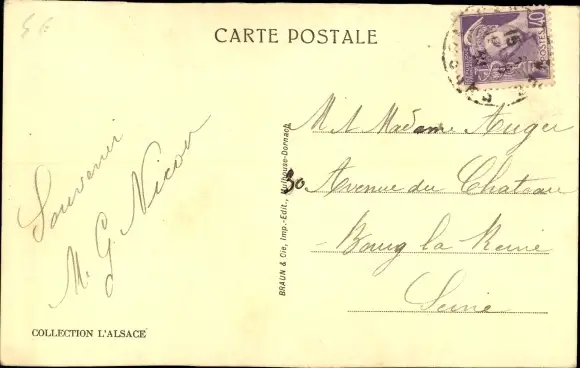 CARTE POSTALE
40
POSTES
Souvenir
M. G. Nicou
M. et Madame Auger
30 Avenue du Chateau
Bourg la Reine
Seine
BRAUN & Cie, Imp.-Edit., Mulhouse-Dornach
COLLECTION L'ALSACE